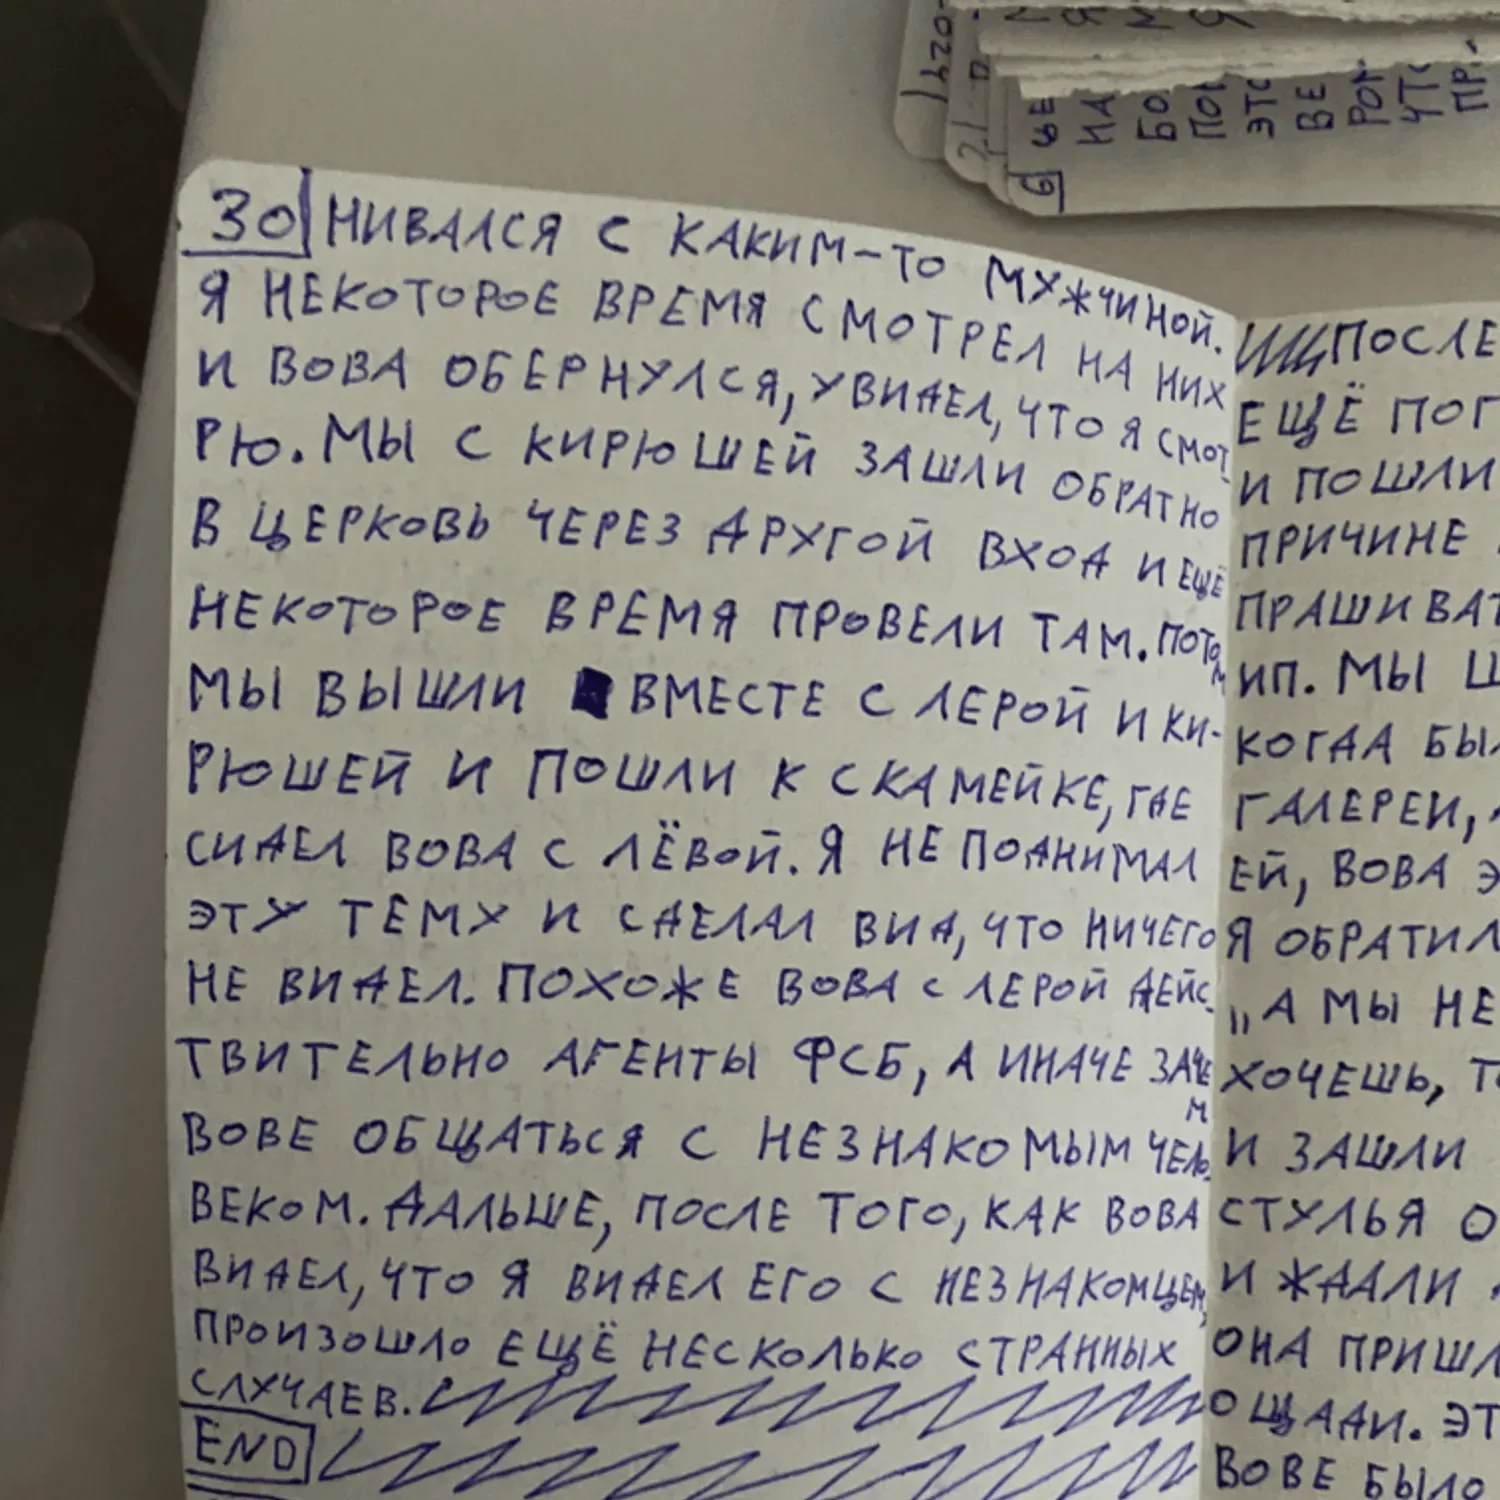 30 НИВАЛСЯ С КАКИМ-ТО МУЖЧИНОЙ.
Я НЕКОТОРОЕ ВРЕМЯ СМОТРЕЛ НА НИХ
И ВОВА ОБЕРНУЛСЯ, УВИДЕЛ, ЧТО Я СМОТ-
РЮ. МЫ С КИРЮШЕЙ ЗАШЛИ ОБРАТНО
В ЦЕРКОВЬ ЧЕРЕЗ ДРУГОЙ ВХОД И ЕЩЁ
НЕКОТОРОЕ ВРЕМЯ ПРОВЕЛИ ТАМ. ПОТОМ
МЫ ВЫШЛИ ВМЕСТЕ С ЛЕРОЙ И КИ-
РЮШЕЙ И ПОШЛИ К СКАМЕЙКЕ, ГДЕ
СИДЕЛ ВОВА С ЛЁВОЙ. Я НЕ ПОДНИМАЛ
ЭТУ ТЕМУ И СДЕЛАЛ ВИД, ЧТО НИЧЕГО
НЕ ВИДЕЛ. ПОХОЖЕ ВОВА С ЛЕРОЙ ДЕЙС-
ТВИТЕЛЬНО АГЕНТЫ ФСБ, А ИНАЧЕ ЗАЧЕМ
ВОВЕ ОБЩАТЬСЯ С НЕЗНАКОМЫМ ЧЕЛО-
ВЕКОМ. ДАЛЬШЕ, ПОСЛЕ ТОГО, КАК ВОВА
ВИДЕЛ, ЧТО Я ВИДЕЛ ЕГО С НЕЗНАКОМЦЕМ,
ПРОИЗОШЛО ЕЩЁ НЕСКОЛЬКО СТРАННЫХ
СЛУЧАЕВ.
END
ПОСЛЕ
ЕЩЁ ПОГ
И ПОШЛИ
ПРИЧИНЕ
ПРАШИВАТ
ИП. МЫ Ш
КОГДА БЫЛ
ГАЛЕРЕИ,
ЕЙ, ВОВА Э
Я ОБРАТИЛ
„А МЫ НЕ
ХОЧЕШЬ, ТО
И ЗАШЛИ
СТУЛЬЯ О
И ЖДАЛИ
ОНА ПРИШЛ
ОЩАДИ. ЭТ
ВОВЕ БЫЛО
6
ЦЕ
НА
БО
ПО
ЭТО
ВЕ
РОМ
ЧТО
ПР
21